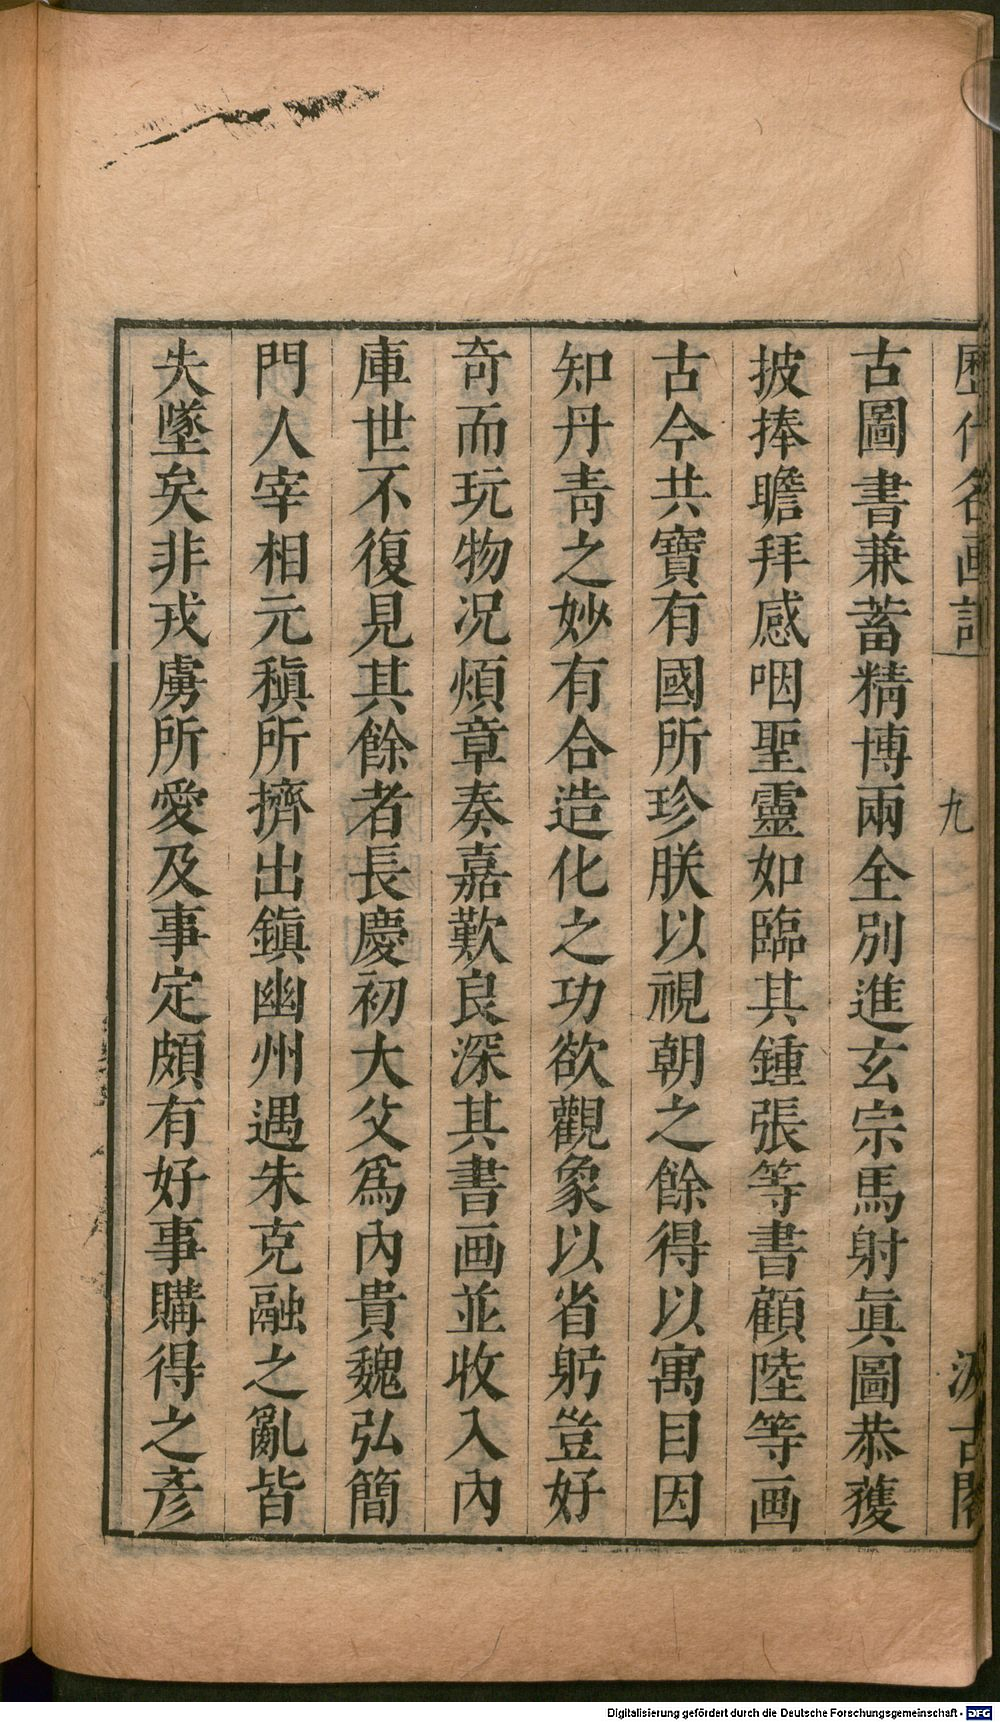 歷代名画記 九 汲古閣
古圖書兼蓄精博兩全別進玄宗馬射眞圖恭獲
披捧瞻拜感咽聖靈如臨其鍾張等書顧陸等画
古今共寶有國所珍朕以視朝之餘得以寓目因
知丹靑之妙有合造化之功欲觀象以省躬豈好
奇而玩物况煩章奏嘉歎良深其書画並收入內
庫世不復見其餘者長慶初大父爲內貴魏弘簡
門人宰相元稹所擠出鎭幽州遇朱克融之亂皆
失墜矣非戎虜所愛及事定頗有好事購得之彥
Digitalisierung gefördert durch die Deutsche Forschungsgemeinschaft - DFG